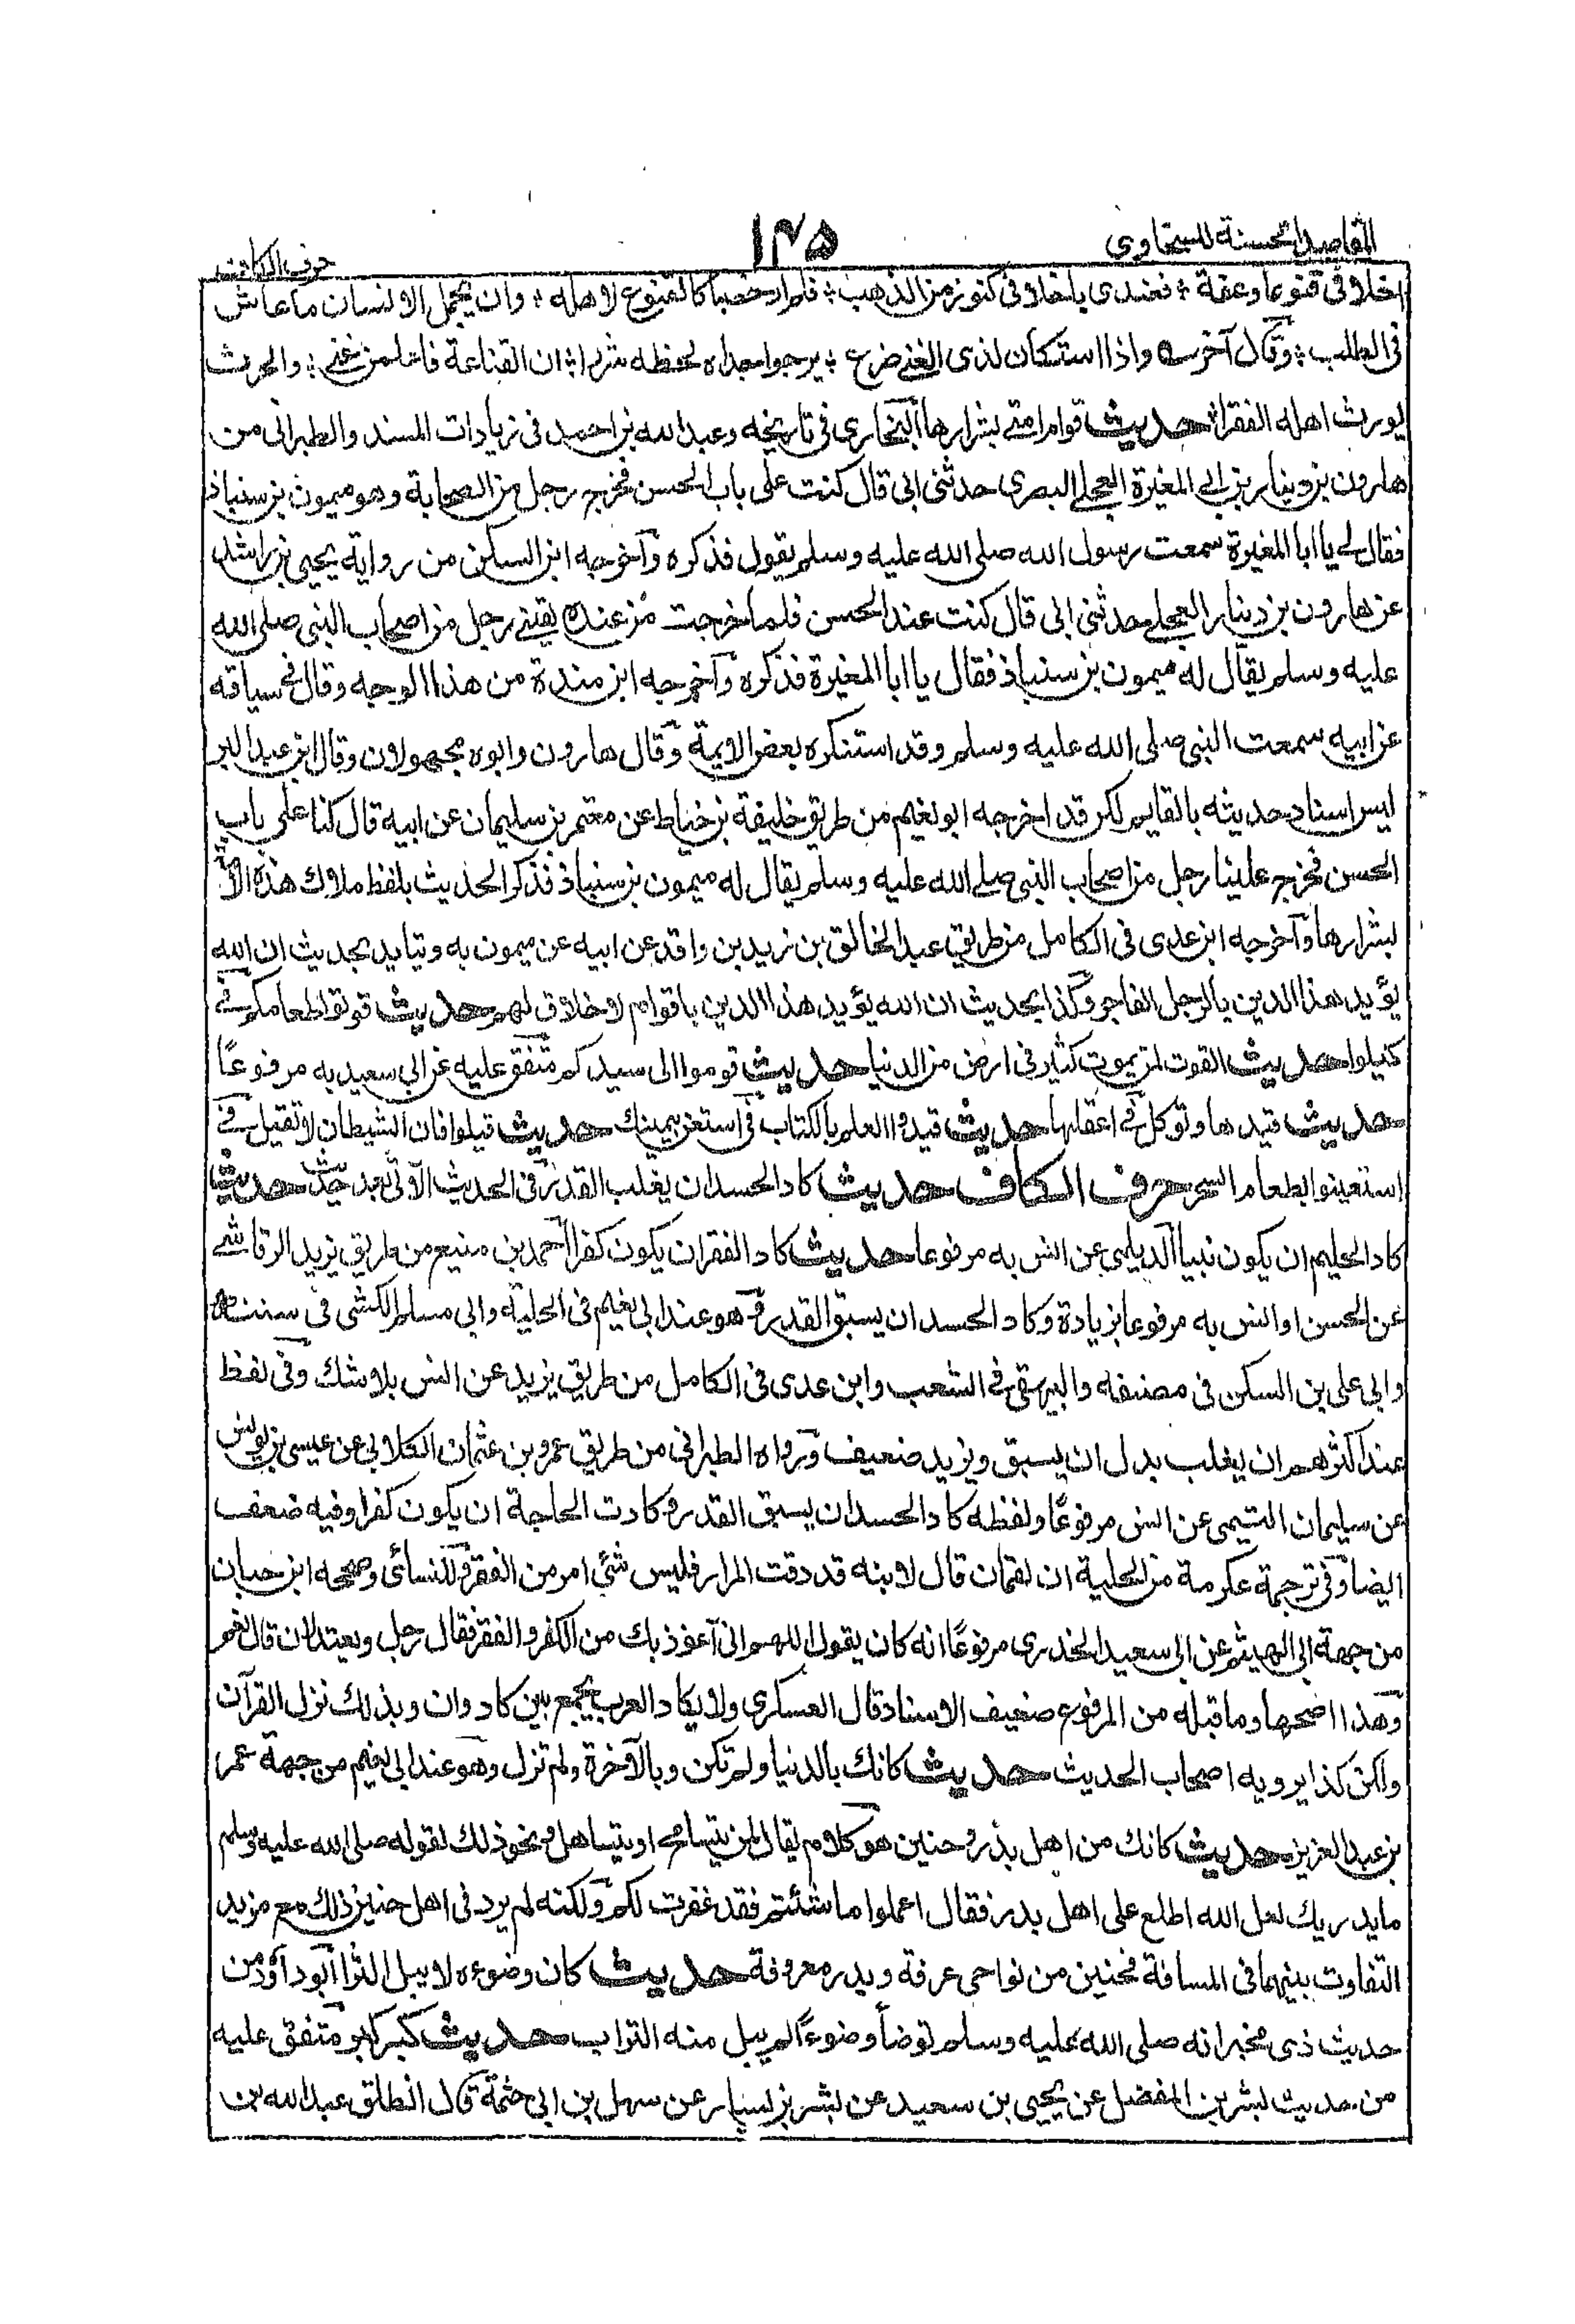 المقاصد الحسنة للسخاوي
١٣٥
حرف الكاف
اخلاقى قنوعا وعفة ؛ فعندى باخلاقى كنوز من الذهب ؛ فلم ار خصبا كالقنوع لاهله ؛ وان يجمل الانسان ما عاش
فى الطلب ؛ وقال آخر واذا استكان لذى الغنے ضرع ؛ يرجوا جداه لحفظه شرا ؛ ان القناعة فاعلمن غنے ؛ والحرث
يورث اهله الفقرا حديث قوام امتے بشرارها البخارى فى تاريخه وعبد الله بن احمد فى زيادات المسند والطبرانى من
هارون بن دينار بن ابے المغيرة العجلے البصرى حدثنى ابى قال كنت على باب الحسن فخرج رجل من الصحابة وهو ميمون بن سنباذ
فقال لے يا ابا المغيرة سمعت رسول الله صلى الله عليه وسلم يقول فذكره وآخرجه ابن السكن من رواية يحيى بن راشد
عن هارون بن دينار العجلے حدثنى ابى قال كنت عند الحسن فلما خرجت من عنده لقينے رجل من اصحاب النبى صلى الله
عليه وسلم يقال له ميمون بن سنباذ فقال يا ابا المغيرة فذكره وآخرجه ابن مندة من هذا الوجه وقال فے سياقه
عن ابيه سمعت النبى صلى الله عليه وسلم وقد استنكره بعض الايمة وقال هارون وابوه مجهولان وقال ابن عبد البر
ليس اسناد حديثه بالقايم لكن قد اخرجه ابو نعيم من طريق خليفة بن خياط عن معتمر بن سليمان عن ابيه قال كنا على باب
الحسن فخرج علينا رجل من اصحاب النبى صلے الله عليه وسلم يقال له ميمون بن سنباذ فذكر الحديث بلفظ ملاك هذه الامة
بشرارها وآخرجه ابن عدى فى الكامل من طريق عبد الخالق بن زيد بن واقد عن ابيه عن ميمون به ويتايد بحديث ان الله
يؤيد هذا الدين بالرجل الفاجر وكذا بحديث ان الله يؤيد هذا الدين باقوام لا خلاق لهم حديث قوتوا طعامكم فے
كيلوا حديث القوت لمن يموت كثير فى ارض من الدنيا حديث قوموا الى سيدكم متفق عليه عن ابي سعيد به مرفوعًا
حديث قيدها وتوكل فے اعقلها حديث قيدوا العلم بالكتاب فى استعن بيمينك حديث قيلوا فان الشيطان لا تقيل فے
استعينوا بطعام السحر حرف الكاف حديث كاد الحسد ان يغلب القدر فى الحديث الآتى بعد حديث حديث
كاد الحليم ان يكون نبيا الديلمى عن انس به مرفوعا حديث كاد الفقر ان يكون كفرا احمد بن منيع من طريق يزيد الرقاشے
عن الحسن او انس به مرفوعا بزيادة وكاد الحسد ان يسبق القدر وهو عند ابى نعيم فى الحلية وابى مسلم الكشى فى سننه
وابى على بن السكن فى مصنفه والبيهقى فے الشعب وابن عدى فى الكامل من طريق يزيد عن انس بلا شك وفى لفظ
عند اكثرهم ان يغلب بدل ان يسبق ويزيد ضعيف ورواه الطبرانى من طريق عمرو بن عثمان الكلابى عن عيسى بن يونس
عن سليمان التيمى عن انس مرفوعًا ولفظه كاد الحسد ان يسبق القدر وكادت الحاجة ان يكون كفرا وفيه ضعف
ايضا وفى ترجمة عكرمة من الحلية ان لقمان قال لابنه قد ذقت المرار فليس شئى امر من الفقر وللنسائى وصححه ابن حبان
من جهة ابى الهيثم عن ابى سعيد الخدرى مرفوعًا انه كان يقول اللهم انى اعوذ بك من الكفر والفقر فقال رجل ويعتدلان قال نعم
وهذا اصحها وما قبله من المرفوع ضعيف الاسناد قال العسكرى ولا يكاد العرب يجمع بين كاد وان وبذلك نزل القرآن
ولكن كذا يرويه اصحاب الحديث حديث كانك بالدنيا ولم تكن وبالآخرة ولم تزل وهو عند ابى نعيم من جهة عمر
بن عبد العزيز حديث كانك من اهل بدر وحنين هو كلام يقال لمن يتسامح او يتساهل ونحو ذلك لقوله صلى الله عليه وسلم
ما يدريك لعل الله اطلع على اهل بدر فقال اعملوا ما شئتم فقد غفرت لكم ولكنه لم يرد فى اهل حنين ذلك مع مزيد
التفاوت بينهما فى المسافة فحنين من نواحى عرفة وبدر معروفة حديث كان وضوءه لا يبل الثرا ابو داؤد من
حديث ذى مخبر انه صلى الله عليه وسلم توضأ وضوءًا لم يبل منه التراب حديث كبر كبر متفق عليه
من حديث بشر بن المفضل عن يحيى بن سعيد عن بشر بن يسار عن سهل بن ابى حثمة قال انطلق عبد الله بن